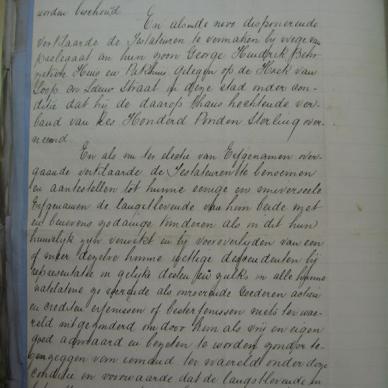 worden beschouwd
En alsmede nero disponeerende
verklaarde de Testateuren te vermaken bij wege van
preelegaat aan hun zoon George Hendrik
Huis en Pakhuis gelegen op de Hoek van
Loop en Leeuw Straat in deze stad onder con-
ditie dat hij de daarop thans hechtende ver-
band van Zes Honderd Ponden Sterling over-
neemd.
En als nu ter electie van Erfgenamen over-
gaande verklaarde de Testateuren te benoemen
en aantestellen tot hunne eenige en universeele
Erfgenamen de langstlevende van hun beide met
en benevens zodanige kinderen als in dit hun
huwelijk zijn verwekt en bij vooroverlijden van een
of meer derzelve hunne wettige descendenten bij
representatie in gelijke deelen en zulks in alle hunne
natelatene zo roerende als onroerende Goederen actien
en crediten erfenissen of besterfenissen niets ter wae-
reld uitgezonderd om door hem als vrij en eigen
goed aanvaard en bezeten te worden zonder te-
genzeggen van iemand ter waereld onder deze
conditie en voorwaarde dat de langstlevende in